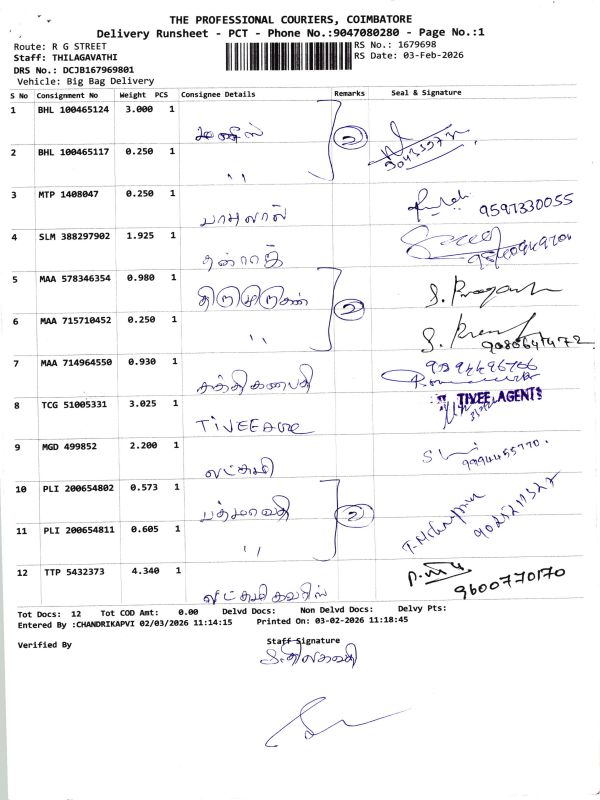 THE PROFESSIONAL COURIERS, COIMBATORE
Delivery Runsheet - PCT - Phone No.:9047080280 - Page No.:1
Route: R G STREET
RS No.: 1679698
Staff: THILAGAVATHI
RS Date: 03-Feb-2026
DRS No.: DCJB167969801
Vehicle: Big Bag Delivery
S No Consignment No Weight PCS Consignee Details Remarks Seal & Signature
1 BHL 100465124 3.000 1 2
2 BHL 100465117 0.250 1 "
3 MTP 1408047 0.250 1 பாபுலால் 9597330055
4 SLM 388297902 1.925 1 தன்ராஜ்
5 MAA 578346354 0.980 1 திருமுருகன் 2
6 MAA 715710452 0.250 1 "
7 MAA 714964550 0.930 1 சக்தி கணபதி
8 TCG 51005331 3.025 1 TIVEE AGENTS
9 MGD 499852 2.200 1 லட்சுமி 9994455770.
10 PLI 200654802 0.573 1 பத்மாவதி 2
11 PLI 200654811 0.605 1 "
12 TTP 5432373 4.340 1 9600770170
Tot Docs: 12 Tot COD Amt: 0.00 Delvd Docs: Non Delvd Docs: Delvy Pts:
Entered By :CHANDRIKAPVI 02/03/2026 11:14:15 Printed On: 03-02-2026 11:18:45
Verified By Staff Signature
S. திலகவதி